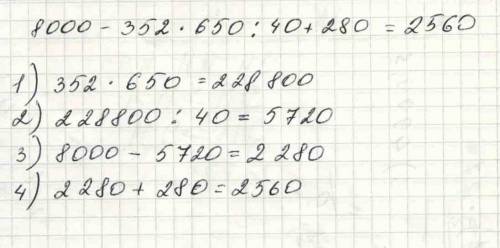 8000 - 352 · 650 : 40 + 280 = 2560
1) 352 · 650 = 228800
2) 228800 : 40 = 5720
3) 8000 - 5720 = 2280
4) 2280 + 280 = 2560